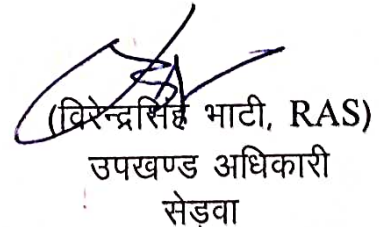 (विरेन्द्रसिंह भाटी, RAS)
उपखण्ड अधिकारी
सेड़वा